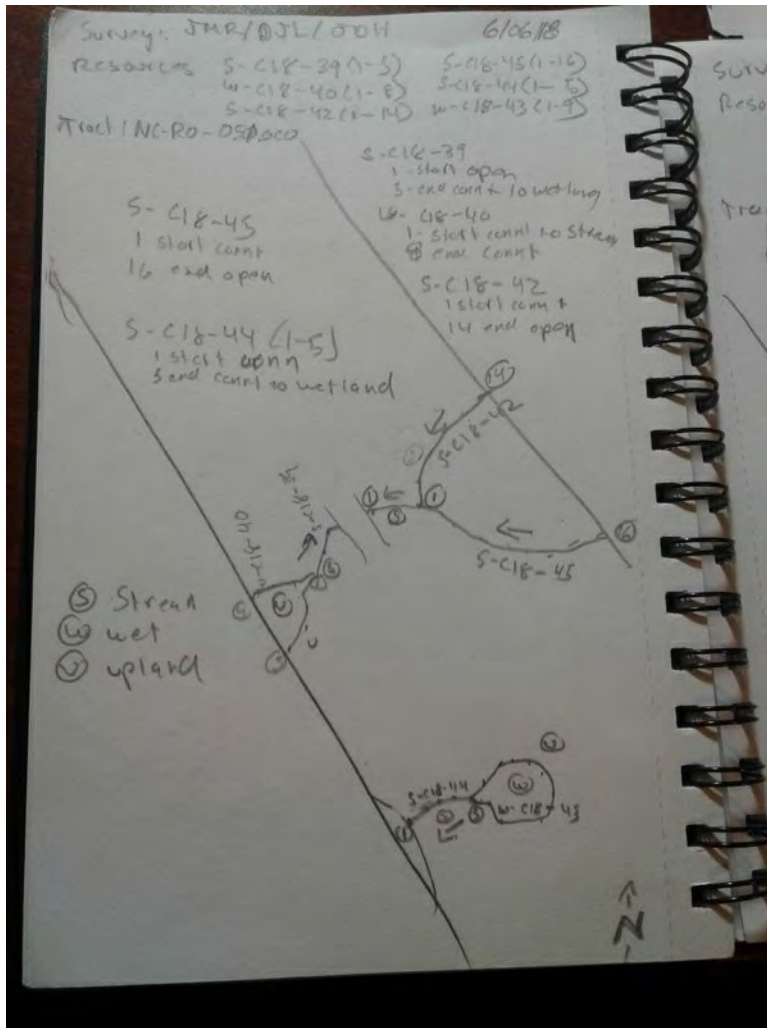 Survey: JMR/DJL/JOH 6/06/18
Resources S-C18-39(1-5) S-C18-45(1-16)
W-C18-40(1-8) S-C18-44(1-5)
S-C18-42(1-14) W-C18-43(1-9)
Tract: NC-RO-050.000
S-C18-39
1 start open
5-end connt to wetland
W-C18-40
1-start connt to Stream
8 end connt
S-C18-42
1 start connt
14 end open
S-C18-45
1 start connt
16 end open
S-C18-44 (1-5)
1 start conn
5 end connt to wetland
14
S-C18-42
1
S
1
16
S-C18-45
S-C18-39
W-C18-40
S Stream
W wet
U upland
U
W
S-C18-44
W-C18-43
N
Surv
Reso